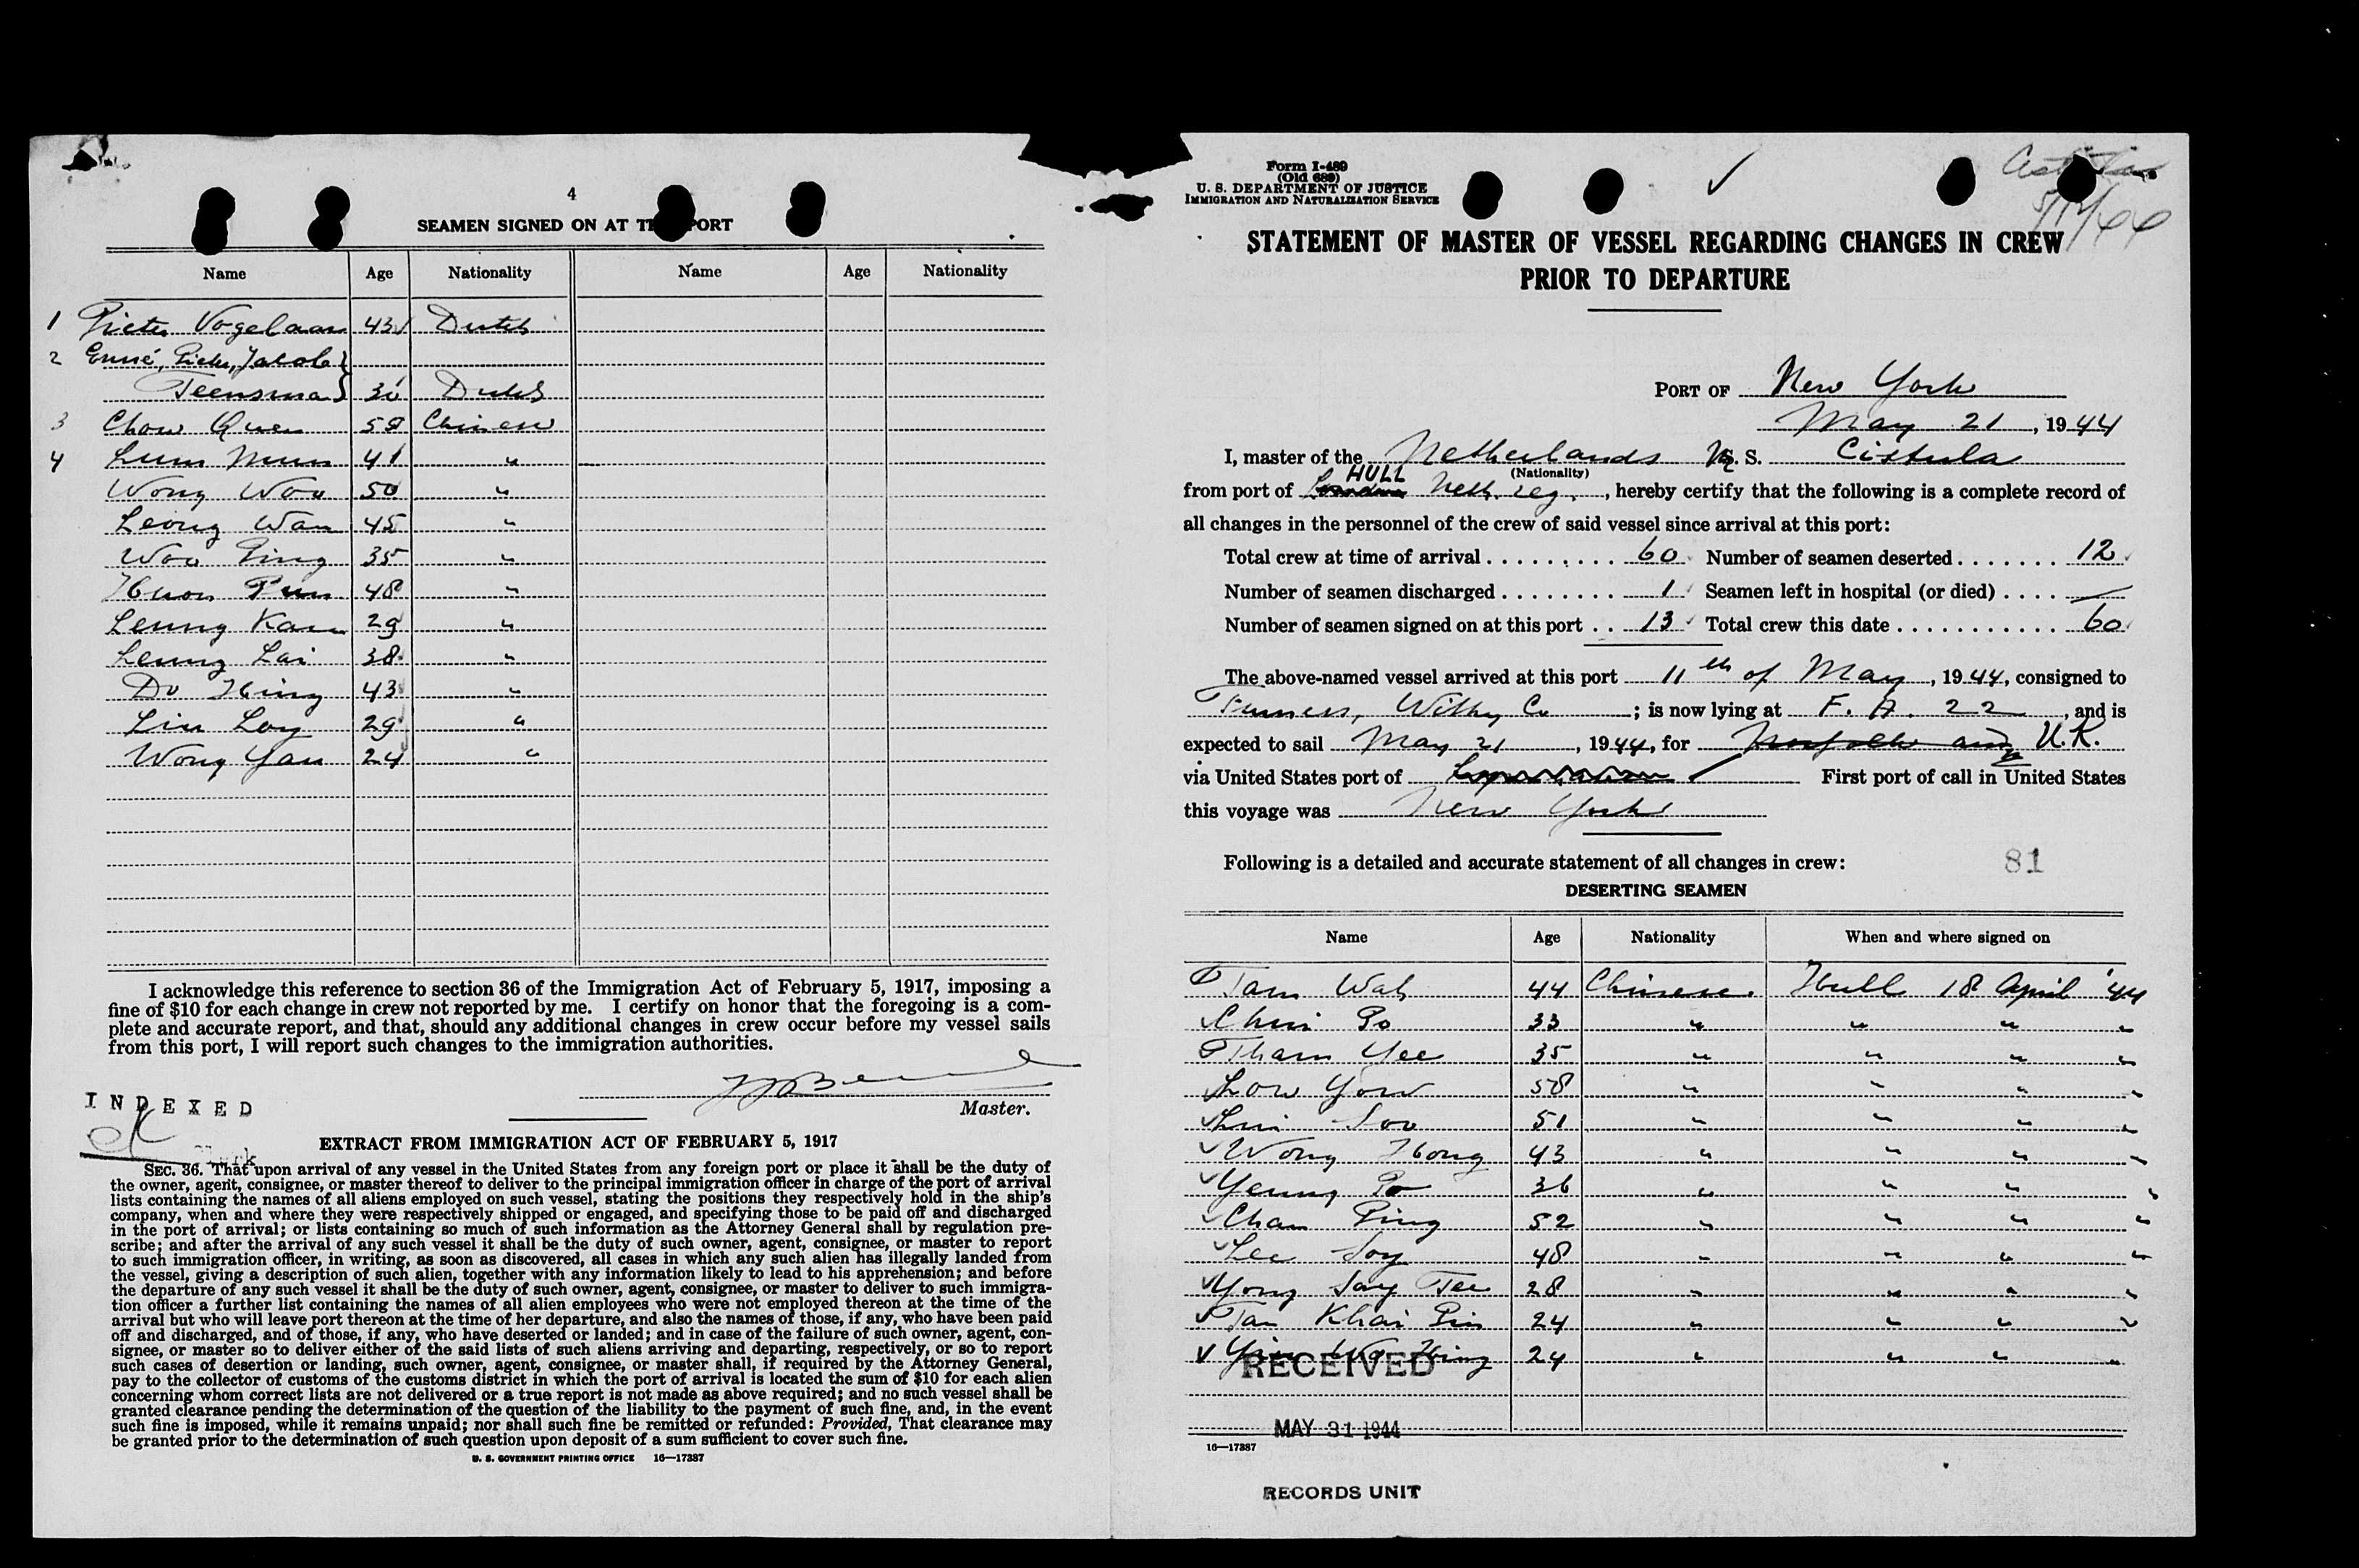 4
SEAMEN SIGNED ON AT THIS PORT
Name Age Nationality Name Age Nationality
1 Pieter Vogelaar 43 Dutch
2 Enné, Pieter, Jacob
Teensma 30 Dutch
3 Chow Quen 58 Chinese
4 Lum Mun 41 "
Wong Woo 50 "
Leong Wan 45 "
Woo Ping 35 "
48 "
Leung Kam 29 "
Leung Lai 38 "
Do Hing 43 "
Lin Loy 29 "
Wong Yau 24 "
I acknowledge this reference to section 36 of the Immigration Act of February 5, 1917, imposing a
fine of $10 for each change in crew not reported by me. I certify on honor that the foregoing is a com-
plete and accurate report, and that, should any additional changes in crew occur before my vessel sails
from this port, I will report such changes to the immigration authorities.
Master.
INDEXED
EXTRACT FROM IMMIGRATION ACT OF FEBRUARY 5, 1917
SEC. 36. That upon arrival of any vessel in the United States from any foreign port or place it shall be the duty of
the owner, agent, consignee, or master thereof to deliver to the principal immigration officer in charge of the port of arrival
lists containing the names of all aliens employed on such vessel, stating the positions they respectively hold in the ship's
company, when and where they were respectively shipped or engaged, and specifying those to be paid off and discharged
in the port of arrival; or lists containing so much of such information as the Attorney General shall by regulation pre-
scribe; and after the arrival of any such vessel it shall be the duty of such owner, agent, consignee, or master to report
to such immigration officer, in writing, as soon as discovered, all cases in which any such alien has illegally landed from
the vessel, giving a description of such alien, together with any information likely to lead to his apprehension; and before
the departure of any such vessel it shall be the duty of such owner, agent, consignee, or master to deliver to such immigra-
tion officer a further list containing the names of all alien employees who were not employed thereon at the time of the
arrival but who will leave port thereon at the time of her departure, and also the names of those, if any, who have been paid
off and discharged, and of those, if any, who have deserted or landed; and in case of the failure of such owner, agent, con-
signee, or master so to deliver either of the said lists of such aliens arriving and departing, respectively, or so to report
such cases of desertion or landing, such owner, agent, consignee, or master shall, if required by the Attorney General,
pay to the collector of customs of the customs district in which the port of arrival is located the sum of $10 for each alien
concerning whom correct lists are not delivered or a true report is not made as above required; and no such vessel shall be
granted clearance pending the determination of the question of the liability to the payment of such fine, and, in the event
such fine is imposed, while it remains unpaid; nor shall such fine be remitted or refunded: Provided, That clearance may
be granted prior to the determination of such question upon deposit of a sum sufficient to cover such fine.
U. S. GOVERNMENT PRINTING OFFICE 16—17387
Form I-489
(Old 689)
U. S. DEPARTMENT OF JUSTICE
IMMIGRATION AND NATURALIZATION SERVICE
STATEMENT OF MASTER OF VESSEL REGARDING CHANGES IN CREW
PRIOR TO DEPARTURE
PORT OF New York
May 21, 1944
I, master of the Netherlands M. S. Cistula
(Nationality)
from port of HULL Neth. reg., hereby certify that the following is a complete record of
all changes in the personnel of the crew of said vessel since arrival at this port:
Total crew at time of arrival . . . . . . . . . 60 Number of seamen deserted . . . . . . . 12
Number of seamen discharged . . . . . . . . 1 Seamen left in hospital (or died) . . . . —
Number of seamen signed on at this port . . 13 Total crew this date . . . . . . . . . . . . 60
The above-named vessel arrived at this port 11th of May, 1944, consigned to
Furness, Withy Co; is now lying at F. A. 22, and is
expected to sail May 21, 1944, for Norfolk and U.K.
via United States port of First port of call in United States
this voyage was New York
Following is a detailed and accurate statement of all changes in crew: 81
DESERTING SEAMEN
Name Age Nationality When and where signed on
Tam Wah 44 Chinese Hull 18 April '44
Chui Po 33 " " " "
Tham Yee 35 " " " "
Low Yow 58 " " " "
Lui Soo 51 " " " "
Wong Hong 43 " " " "
Yeung Po 36 " " " "
Chan Ping 52 " " " "
Lee Soy 48 " " " "
Yong Say Tee 28 " " " "
Tan Khai Pin 24 " " " "
Hing 24 " " " "
RECEIVED
MAY 31 1944
16—17387
RECORDS UNIT